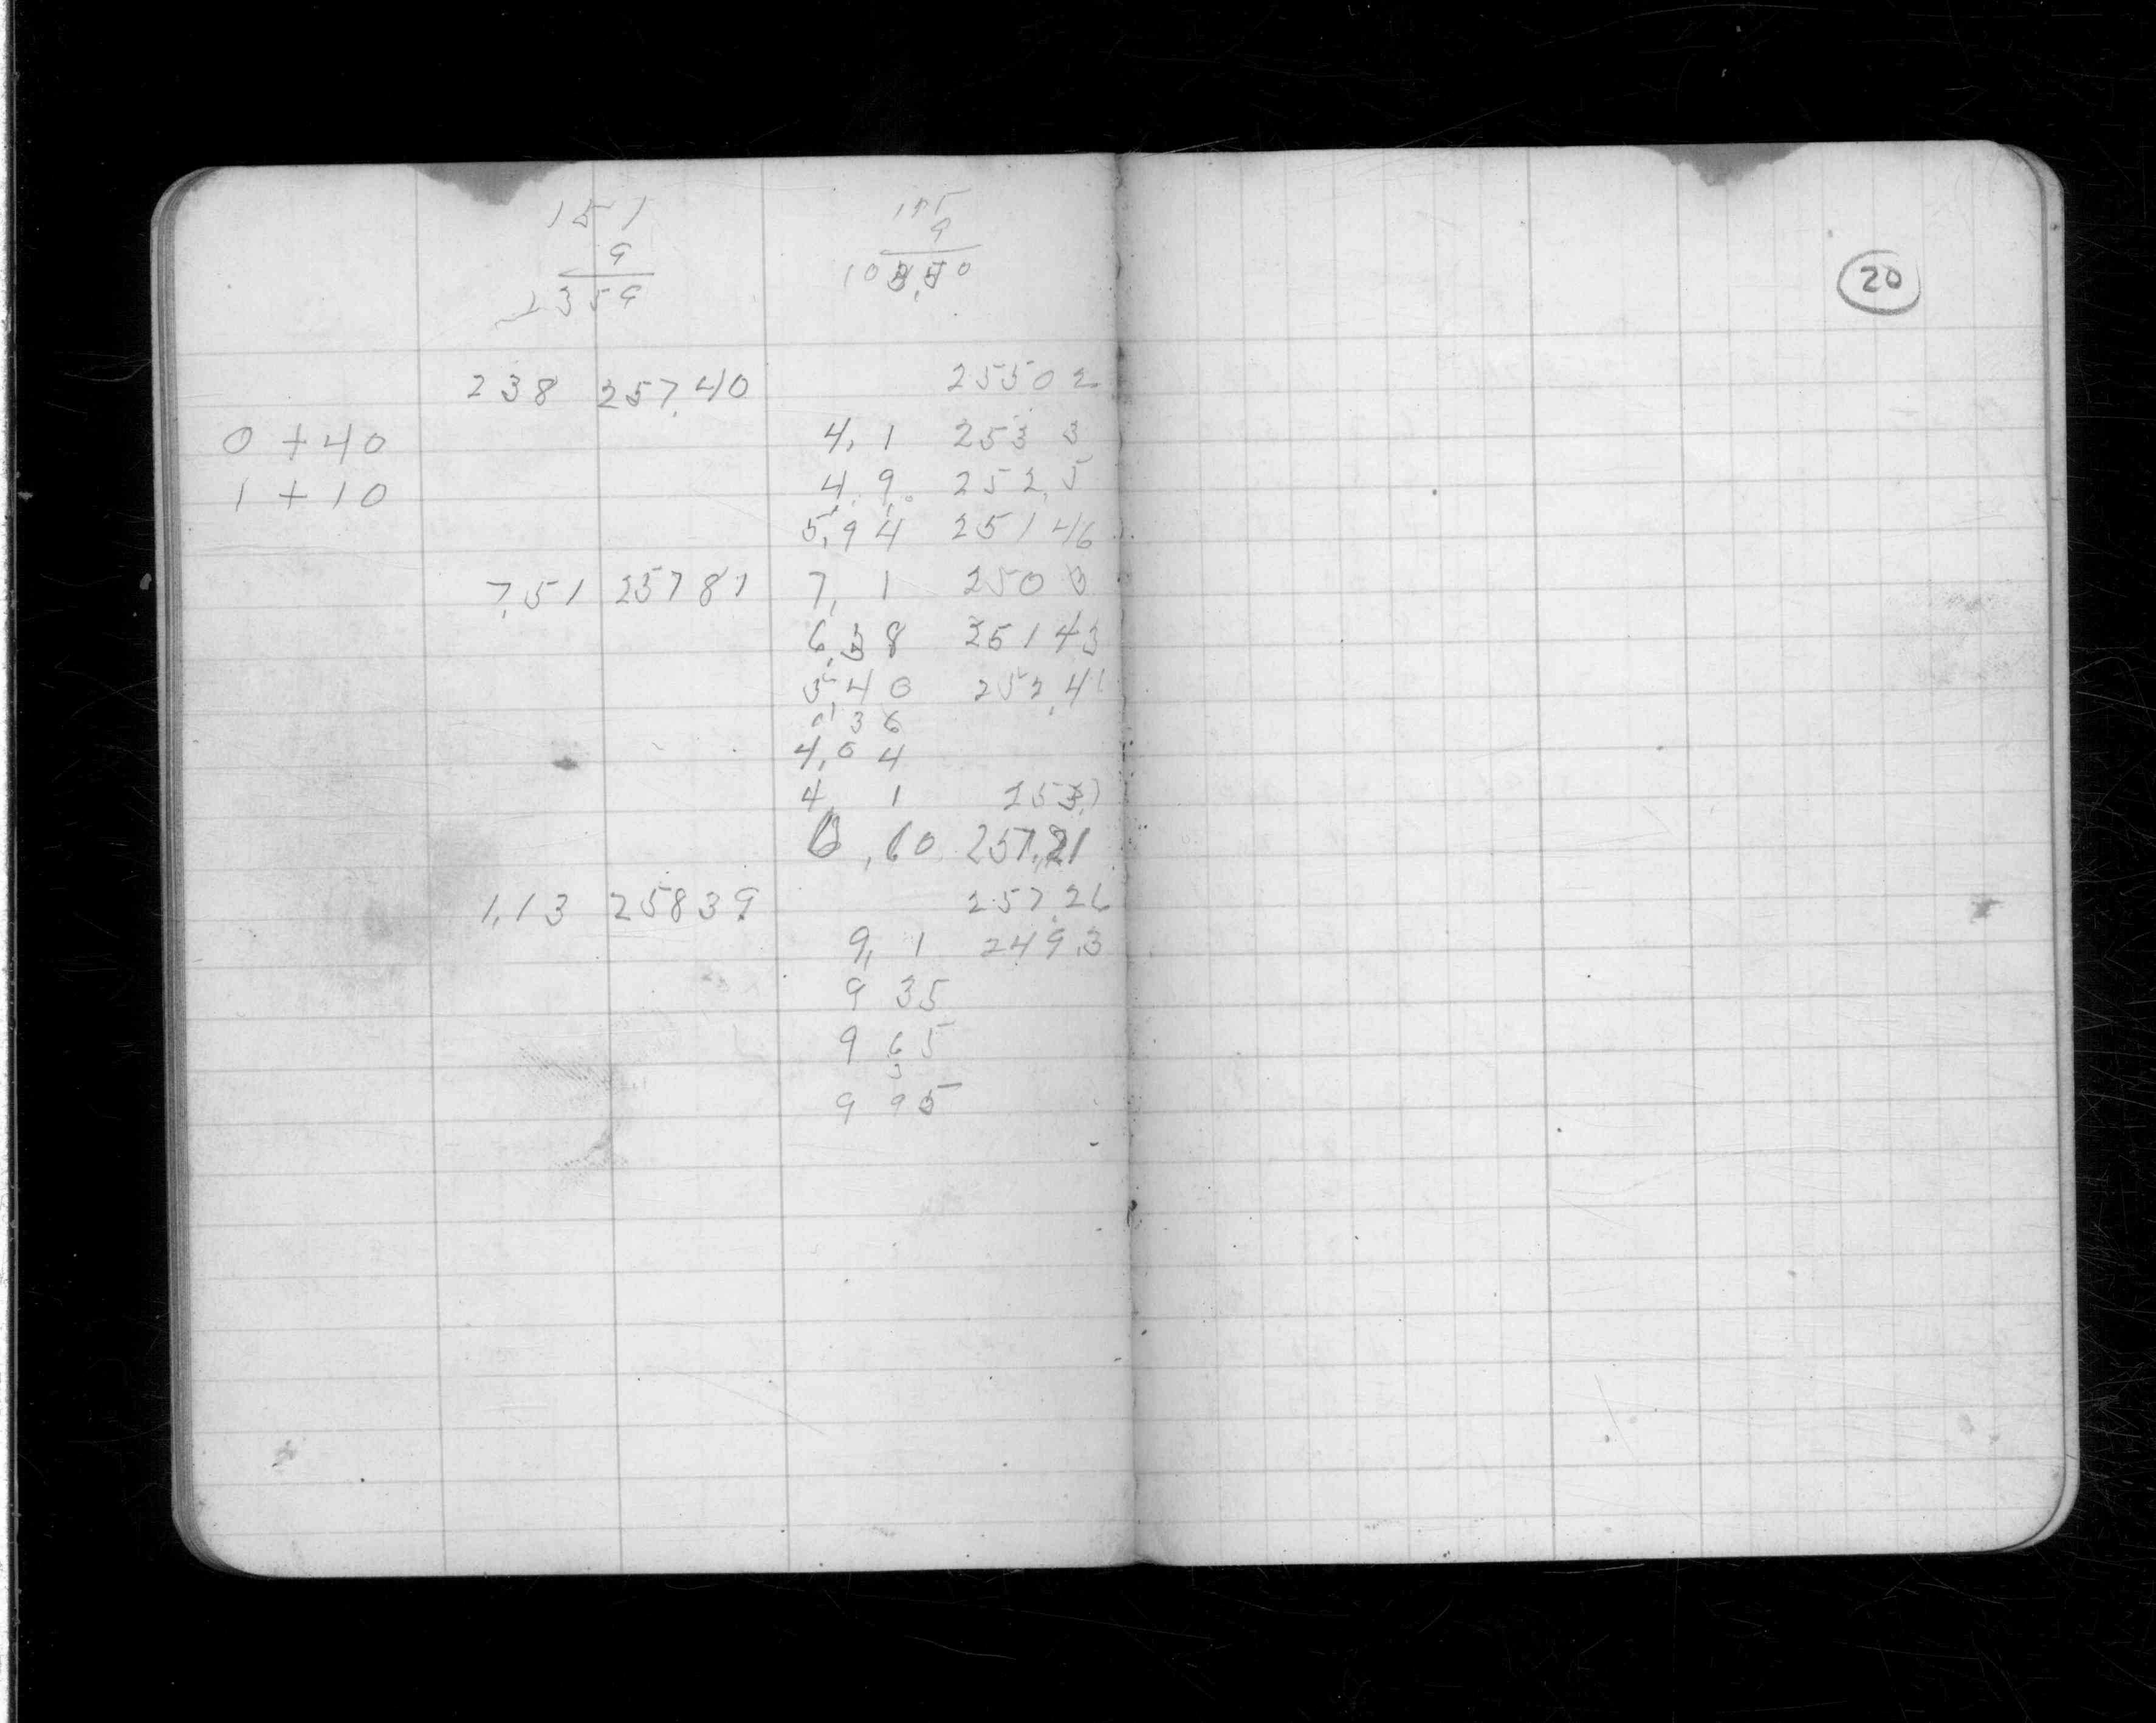 151
9
1359
115
9
238 257.40 25502
0 + 40 4, 1 253 3
1 + 10 4, 9. 252, 5
5,94 251 46
7,51 25781 7, 1 250 3
6,38 25143
5,40 252,41
1 36
4,04
4, 1 253
6,60 257.21
1,13 25839 257.26
9, 1 249.3
9 35
9 65
9 95
20